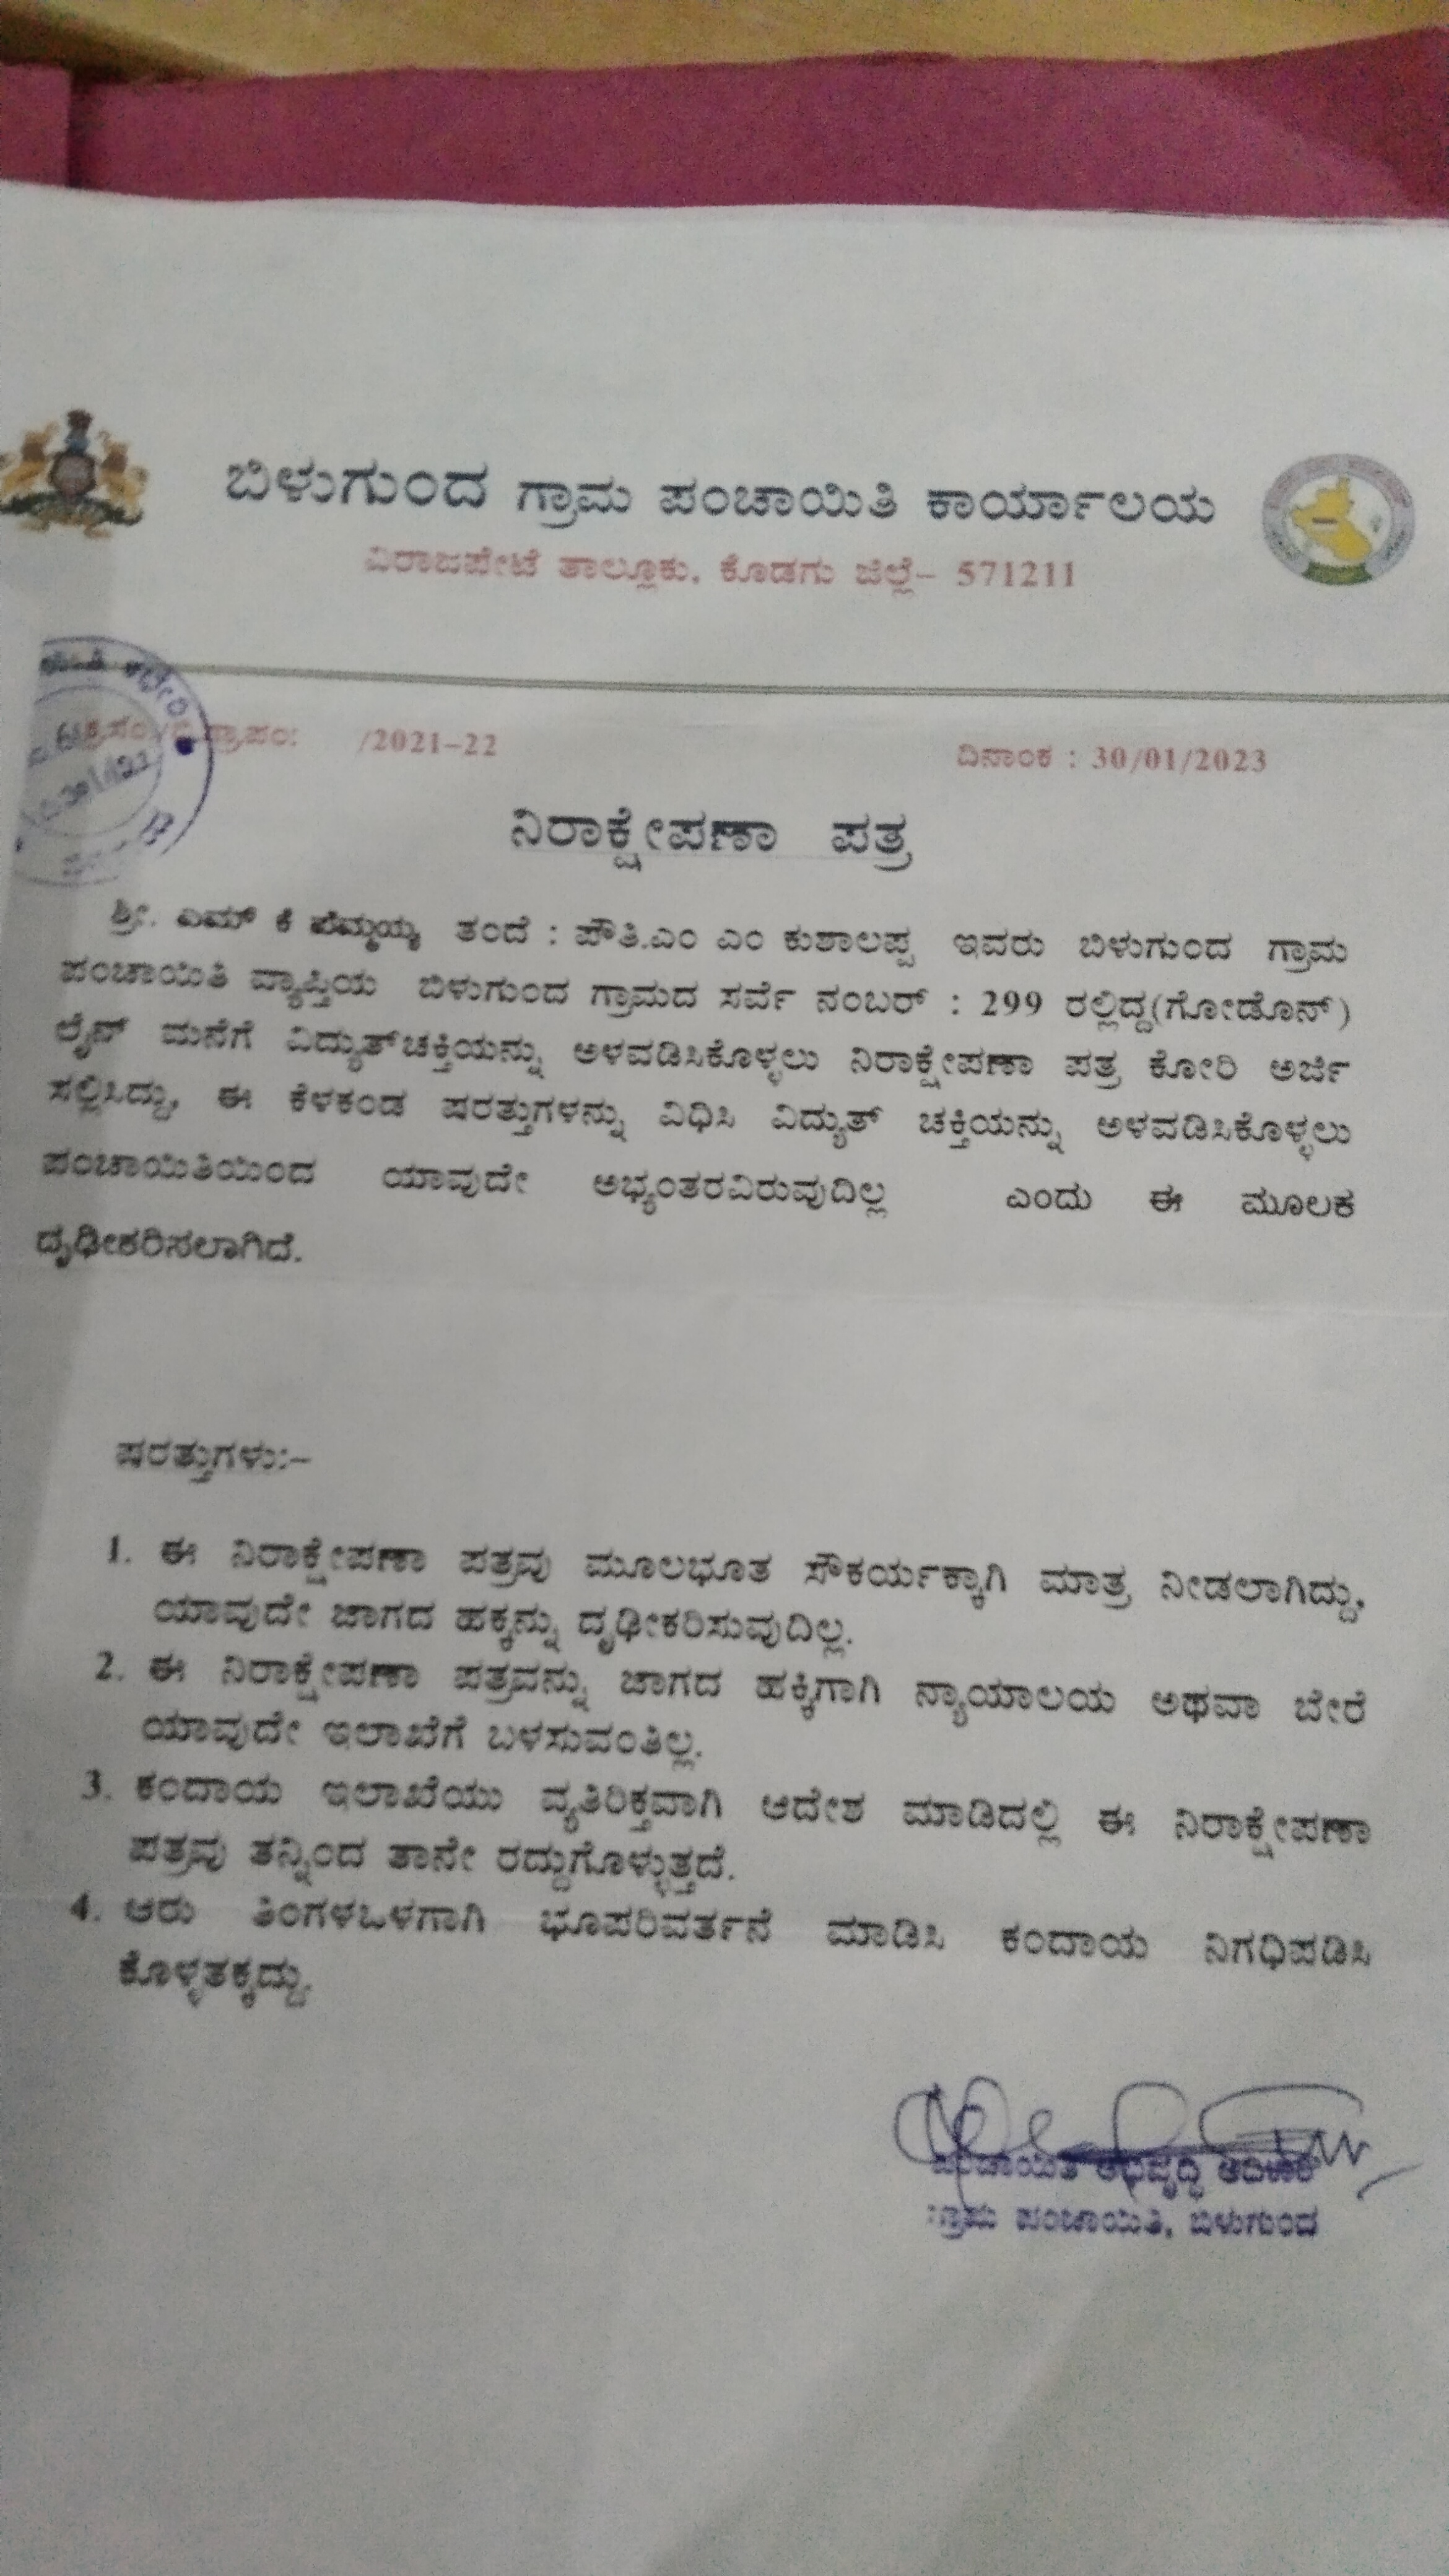 ಬಿಳುಗುಂದ ಗ್ರಾಮ ಪಂಚಾಯಿತಿ ಕಾರ್ಯಾಲಯ
ವಿರಾಜಪೇಟೆ ತಾಲ್ಲೂಕು, ಕೊಡಗು ಜಿಲ್ಲೆ– 571211
/2021–22
ದಿನಾಂಕ : 30/01/2023
ನಿರಾಕ್ಷೇಪಣಾ ಪತ್ರ
ಶ್ರೀ. ಎಮ್ ಕೆ ಪೆಮ್ಮಯ್ಯ ತಂದೆ : ಪೌತಿ.ಎಂ ಎಂ ಕುಶಾಲಪ್ಪ ಇವರು ಬಿಳುಗುಂದ ಗ್ರಾಮ
ಪಂಚಾಯಿತಿ ವ್ಯಾಪ್ತಿಯ ಬಿಳುಗುಂದ ಗ್ರಾಮದ ಸರ್ವೆ ನಂಬರ್ : 299 ರಲ್ಲಿದ್ದ(ಗೋಡೊನ್)
ಲೈನ್ ಮನೆಗೆ ವಿದ್ಯುತ್‌ಚಕ್ತಿಯನ್ನು ಅಳವಡಿಸಿಕೊಳ್ಳಲು ನಿರಾಕ್ಷೇಪಣಾ ಪತ್ರ ಕೋರಿ ಅರ್ಜಿ
ಸಲ್ಲಿಸಿದ್ದು, ಈ ಕೆಳಕಂಡ ಷರತ್ತುಗಳನ್ನು ವಿಧಿಸಿ ವಿದ್ಯುತ್ ಚಕ್ತಿಯನ್ನು ಅಳವಡಿಸಿಕೊಳ್ಳಲು
ಪಂಚಾಯಿತಿಯಿಂದ ಯಾವುದೇ ಅಭ್ಯಂತರವಿರುವುದಿಲ್ಲ ಎಂದು ಈ ಮೂಲಕ
ದೃಢೀಕರಿಸಲಾಗಿದೆ.
ಷರತ್ತುಗಳು:–
1. ಈ ನಿರಾಕ್ಷೇಪಣಾ ಪತ್ರವು ಮೂಲಭೂತ ಸೌಕರ್ಯಕ್ಕಾಗಿ ಮಾತ್ರ ನೀಡಲಾಗಿದ್ದು,
ಯಾವುದೇ ಜಾಗದ ಹಕ್ಕನ್ನು ದೃಢೀಕರಿಸುವುದಿಲ್ಲ.
2. ಈ ನಿರಾಕ್ಷೇಪಣಾ ಪತ್ರವನ್ನು ಜಾಗದ ಹಕ್ಕಿಗಾಗಿ ನ್ಯಾಯಾಲಯ ಅಥವಾ ಬೇರೆ
ಯಾವುದೇ ಇಲಾಖೆಗೆ ಬಳಸುವಂತಿಲ್ಲ.
3. ಕಂದಾಯ ಇಲಾಖೆಯು ವ್ಯತಿರಿಕ್ತವಾಗಿ ಆದೇಶ ಮಾಡಿದಲ್ಲಿ ಈ ನಿರಾಕ್ಷೇಪಣಾ
ಪತ್ರವು ತನ್ನಿಂದ ತಾನೇ ರದ್ದುಗೊಳ್ಳುತ್ತದೆ.
4. ಆರು ತಿಂಗಳಒಳಗಾಗಿ ಭೂಪರಿವರ್ತನೆ ಮಾಡಿಸಿ ಕಂದಾಯ ನಿಗಧಿಪಡಿಸಿ
ಕೊಳ್ಳತಕ್ಕದ್ದು.
ಪಂಚಾಯಿತಿ ಅಭಿವೃದ್ಧಿ
ಗ್ರಾಮ ಪಂಚಾಯಿತಿ, ಬಿಳುಗುಂದ